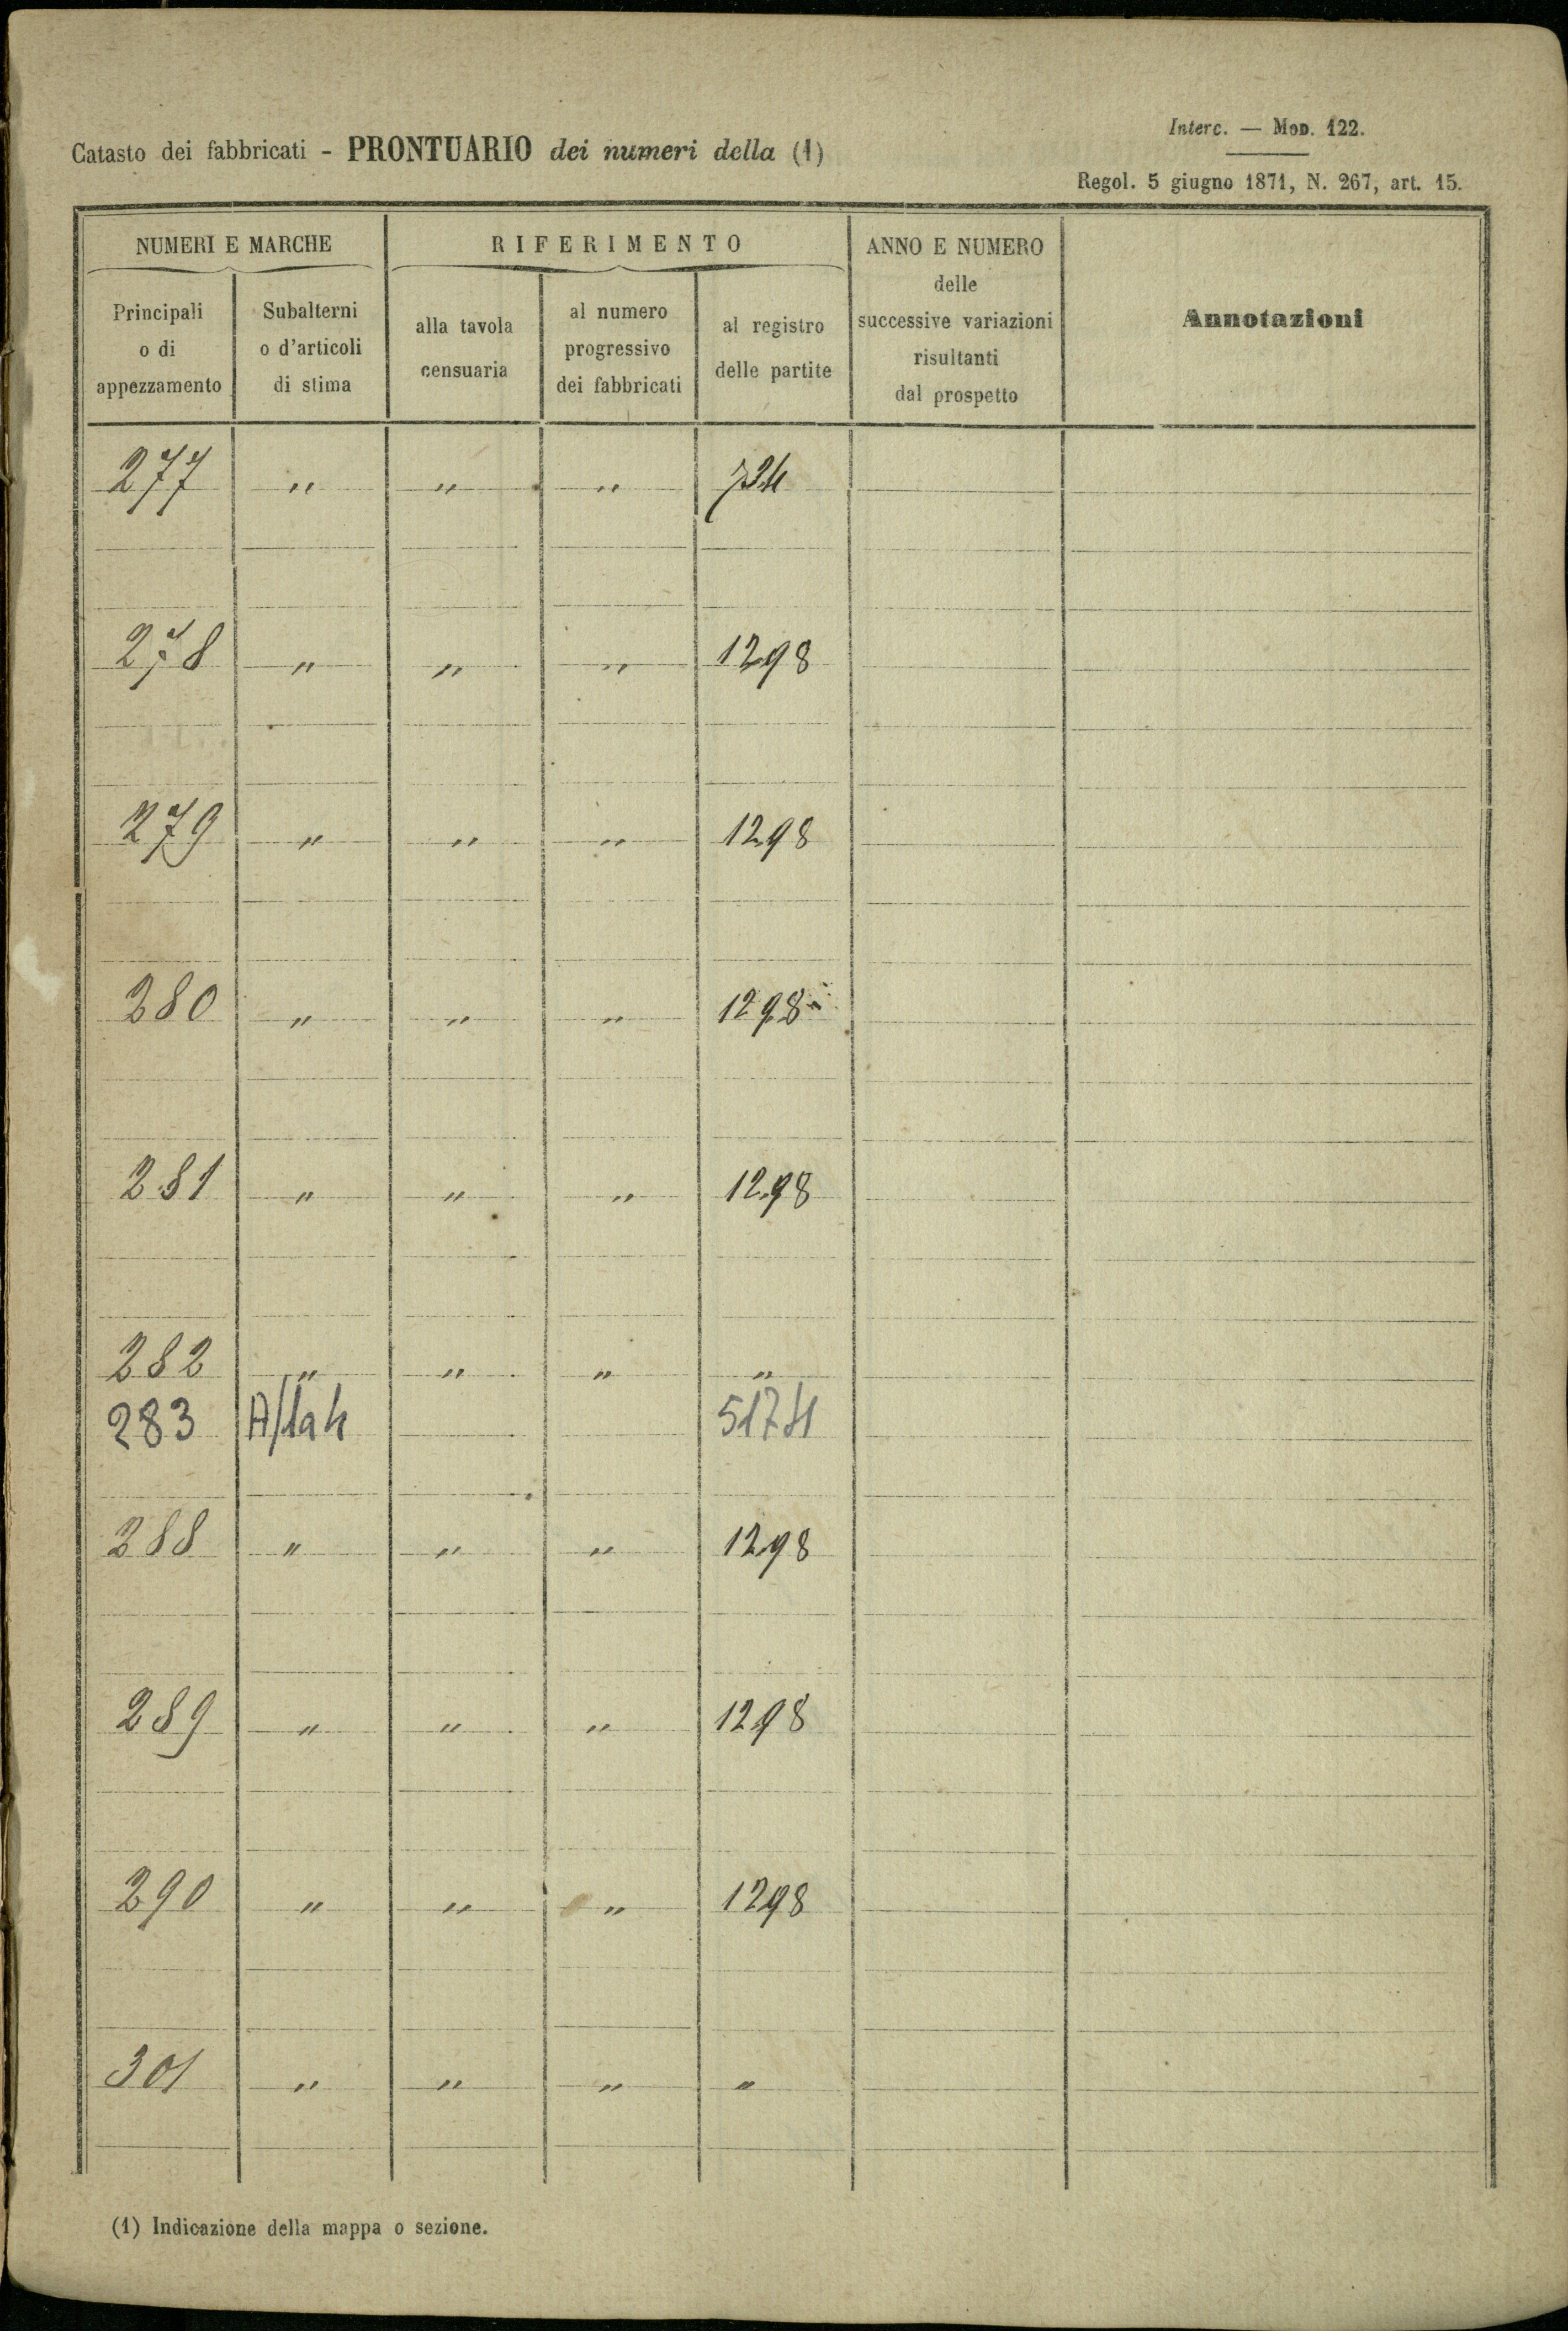 Catasto dei fabbricati - PRONTUARIO dei numeri della (1)
Interc. — Mod. 122.
Regol. 5 giugno 1871, N. 267, art. 15.
NUMERI E MARCHE
RIFERIMENTO
ANNO E NUMERO
delle
successive variazioni
risultanti
dal prospetto
Annotazioni
Principali
o di
appezzamento
Subalterni
o d'articoli
di stima
alla tavola
censuaria
al numero
progressivo
dei fabbricati
al registro
delle partite
277 " " " 724
278 " " " 1298
279 " " " 1298
280 " " " 1298
281 " " " 1298
282 " " " "
283 A/1a4
288 " " " 1298
289 " " " 1298
290 " " " 1298
301 " " " "
(1) Indicazione della mappa o sezione.